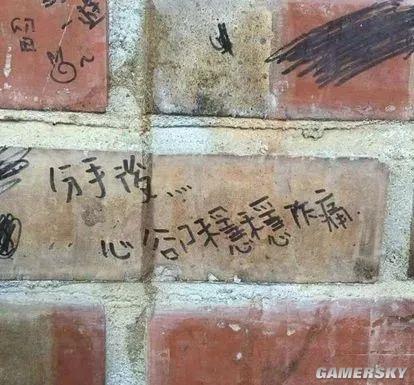 分手後....
心卻穩穩作痛
GAMERSKY